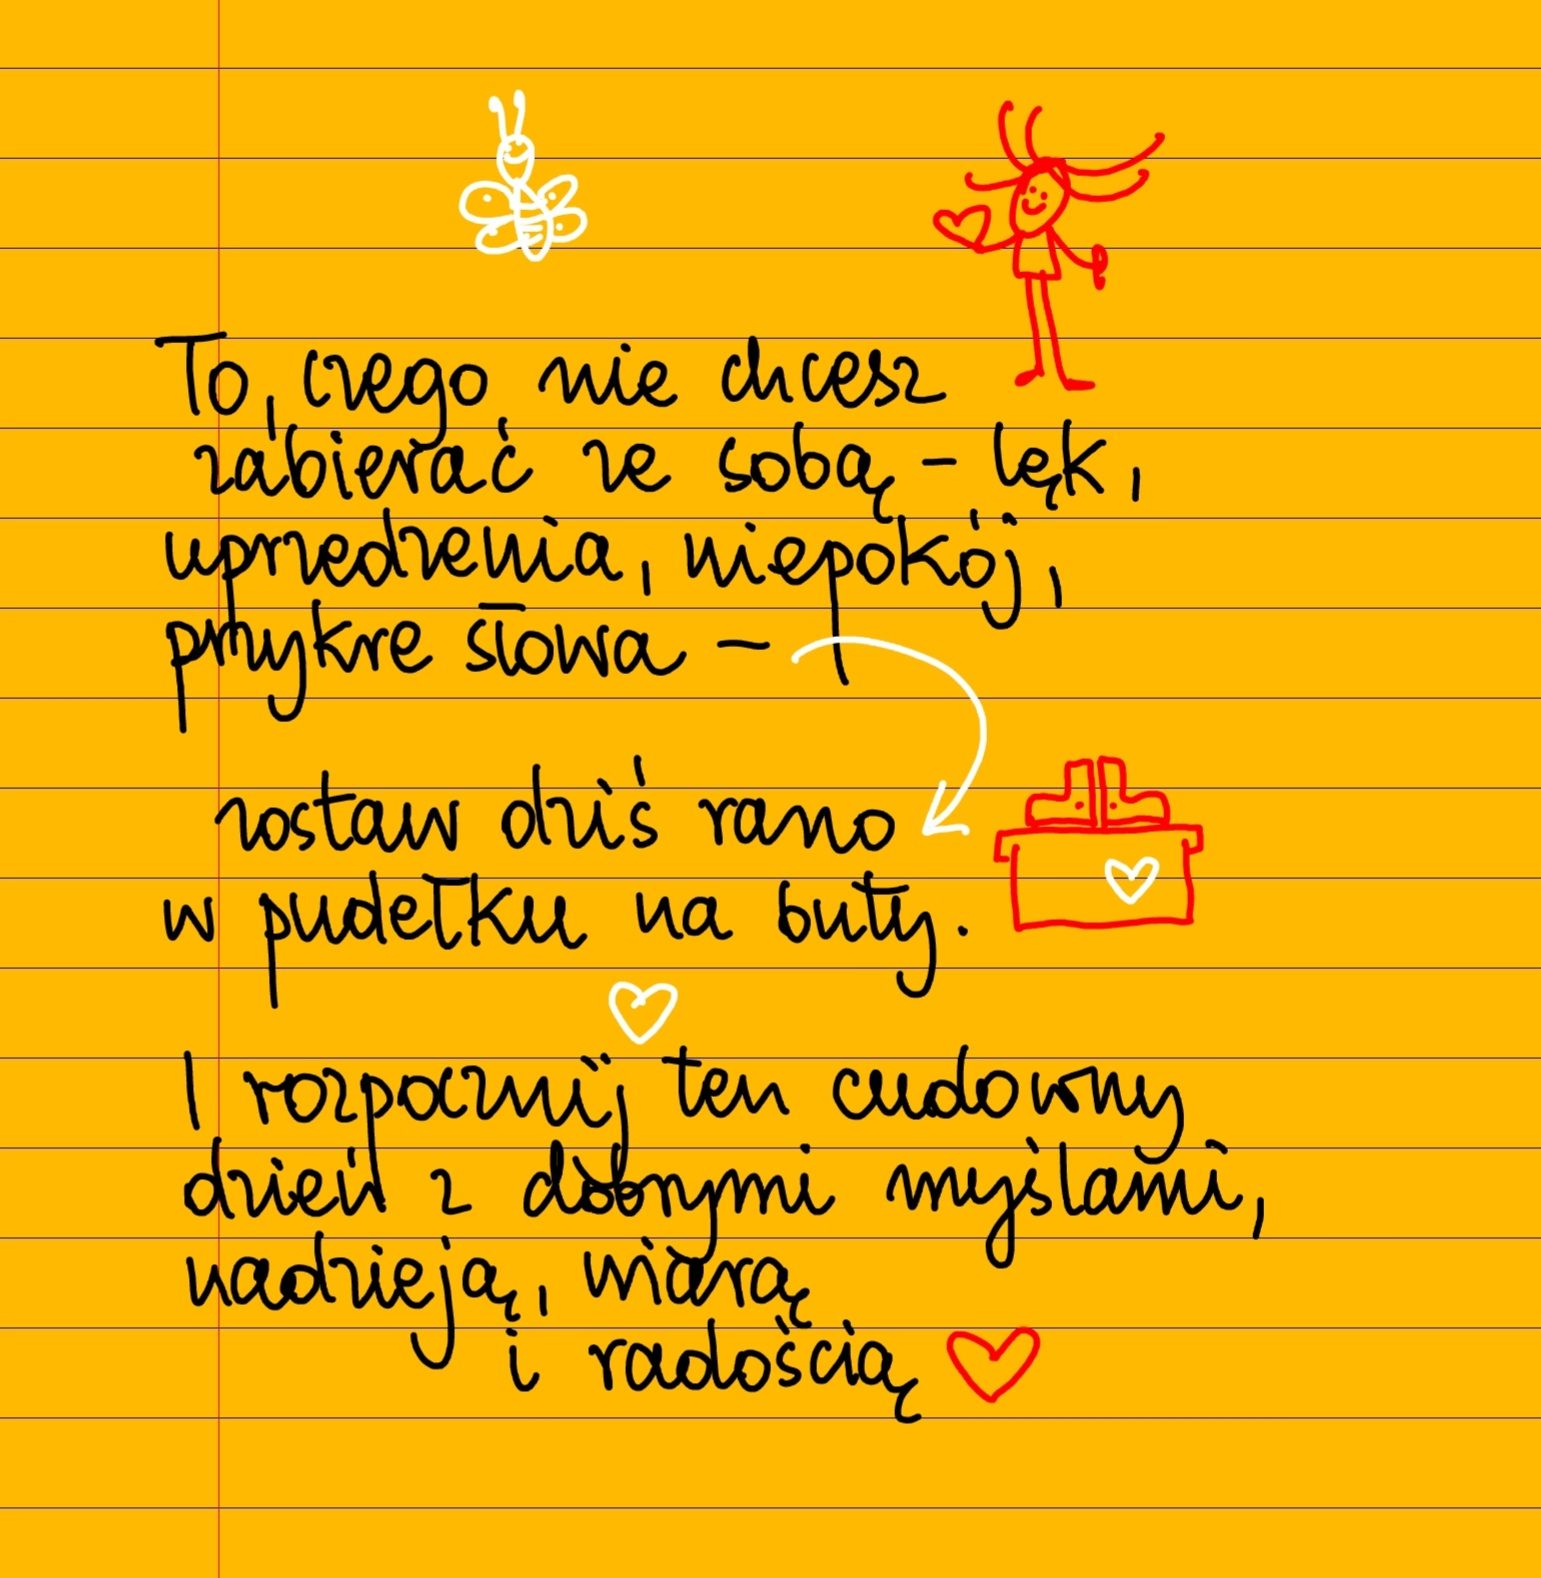 To, czego nie chcesz
zabierać ze sobą - lęk,
uprzedzenia, niepokój,
przykre słowa -
zostaw dziś rano
w pudełku na buty.
I rozpocznij ten cudowny
dzień z dobrymi myślami,
nadzieją, wiarą
i radością